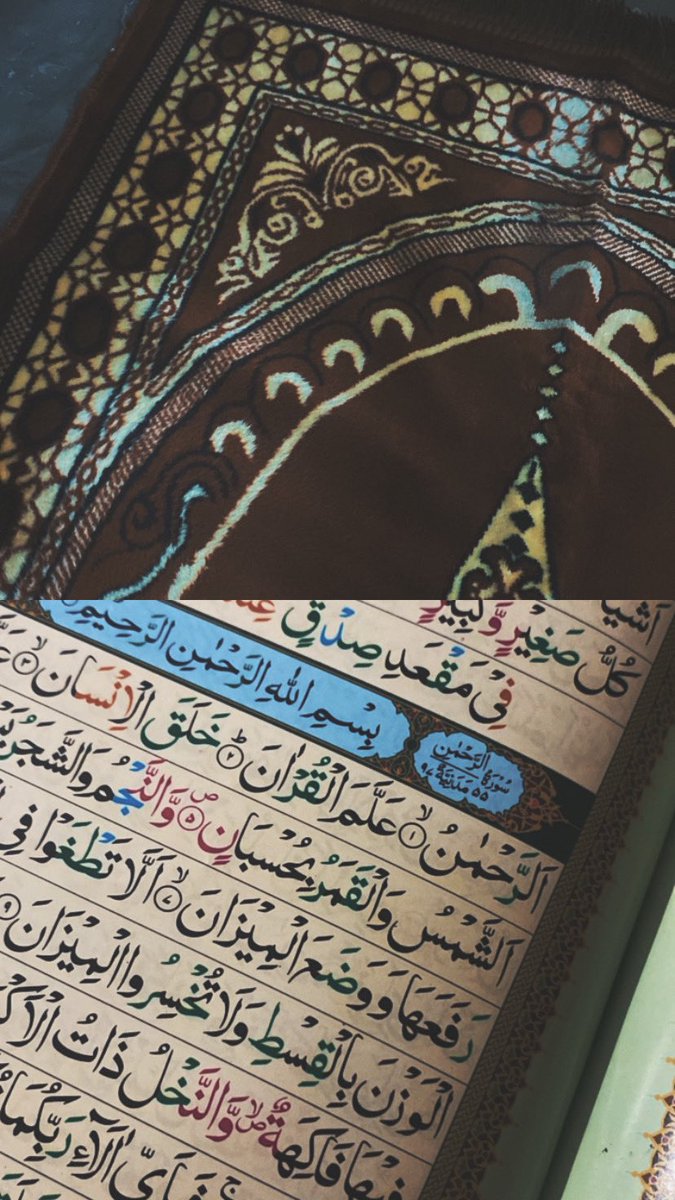 كُلُّ صَغِيْرٍ وَّكَبِيْرٍ
فِيْ مَقْعَدِ صِدْقٍ
سُوْرَةُ الرَّحْمٰنِ
٥٥ مَدَنِيَّةٌ ٩٧
بِسْمِ اللهِ الرَّحْمٰنِ الرَّحِيْمِ
اَلرَّحْمٰنُۙ ۱ عَلَّمَ الْقُرْاٰنَؕ ۲ خَلَقَ الْاِنْسَانَۙ ۳
اَلشَّمْسُ وَالْقَمَرُ بِحُسْبَانٍ ۵ وَّالنَّجْمُ وَالشَّجَرُ
رَفَعَهَا وَوَضَعَ الْمِيْزَانَۙ ۷ اَلَّا تَطْغَوْا فِي
الْوَزْنَ بِالْقِسْطِ وَلَا تُخْسِرُوا الْمِيْزَانَ ۹
فِيْهَا فَاكِهَةٌ وَّالنَّخْلُ ذَاتُ
اٰلَآءِ رَبِّكُمَا